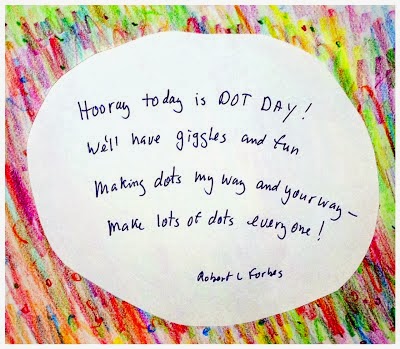 Hooray today is DOT DAY!
We'll have giggles and fun
Making dots my way and your way –
make lots of dots everyone!
Robert L Forbes